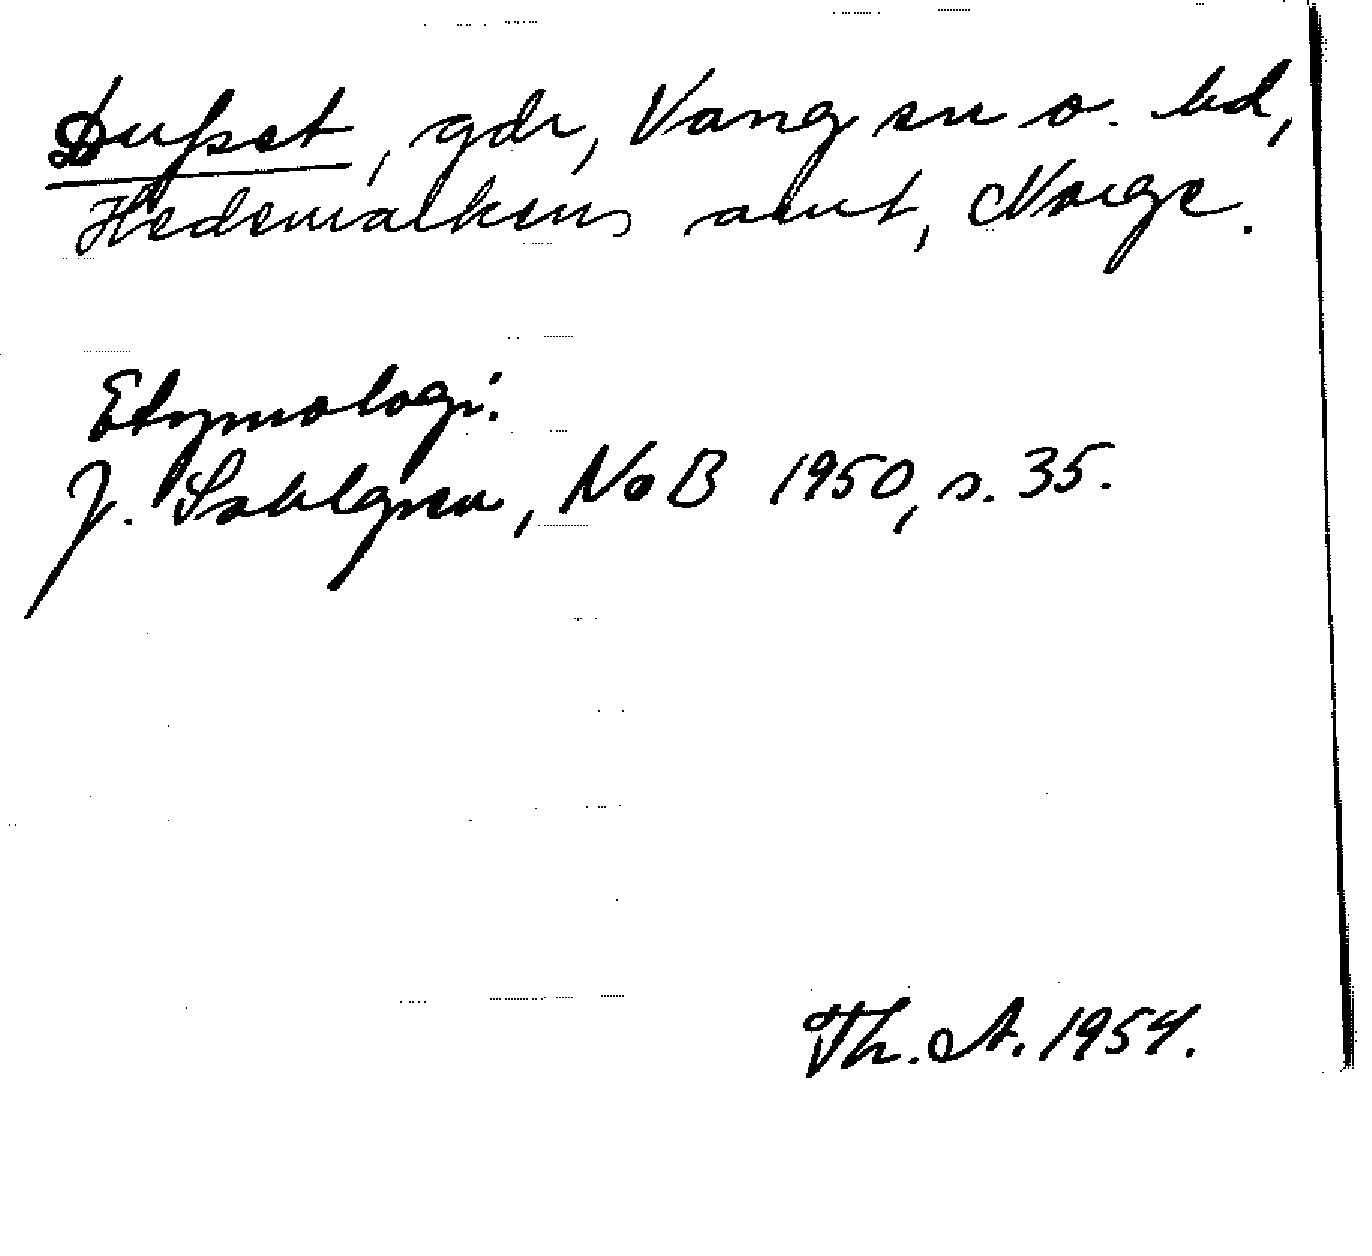 Dufset, gdr, Vang sn o. hd,
Hedemarkens amt, Norge.
Etymologi:
J. Sahlgren, NoB 1950, s. 35.
Th. A. 1954.